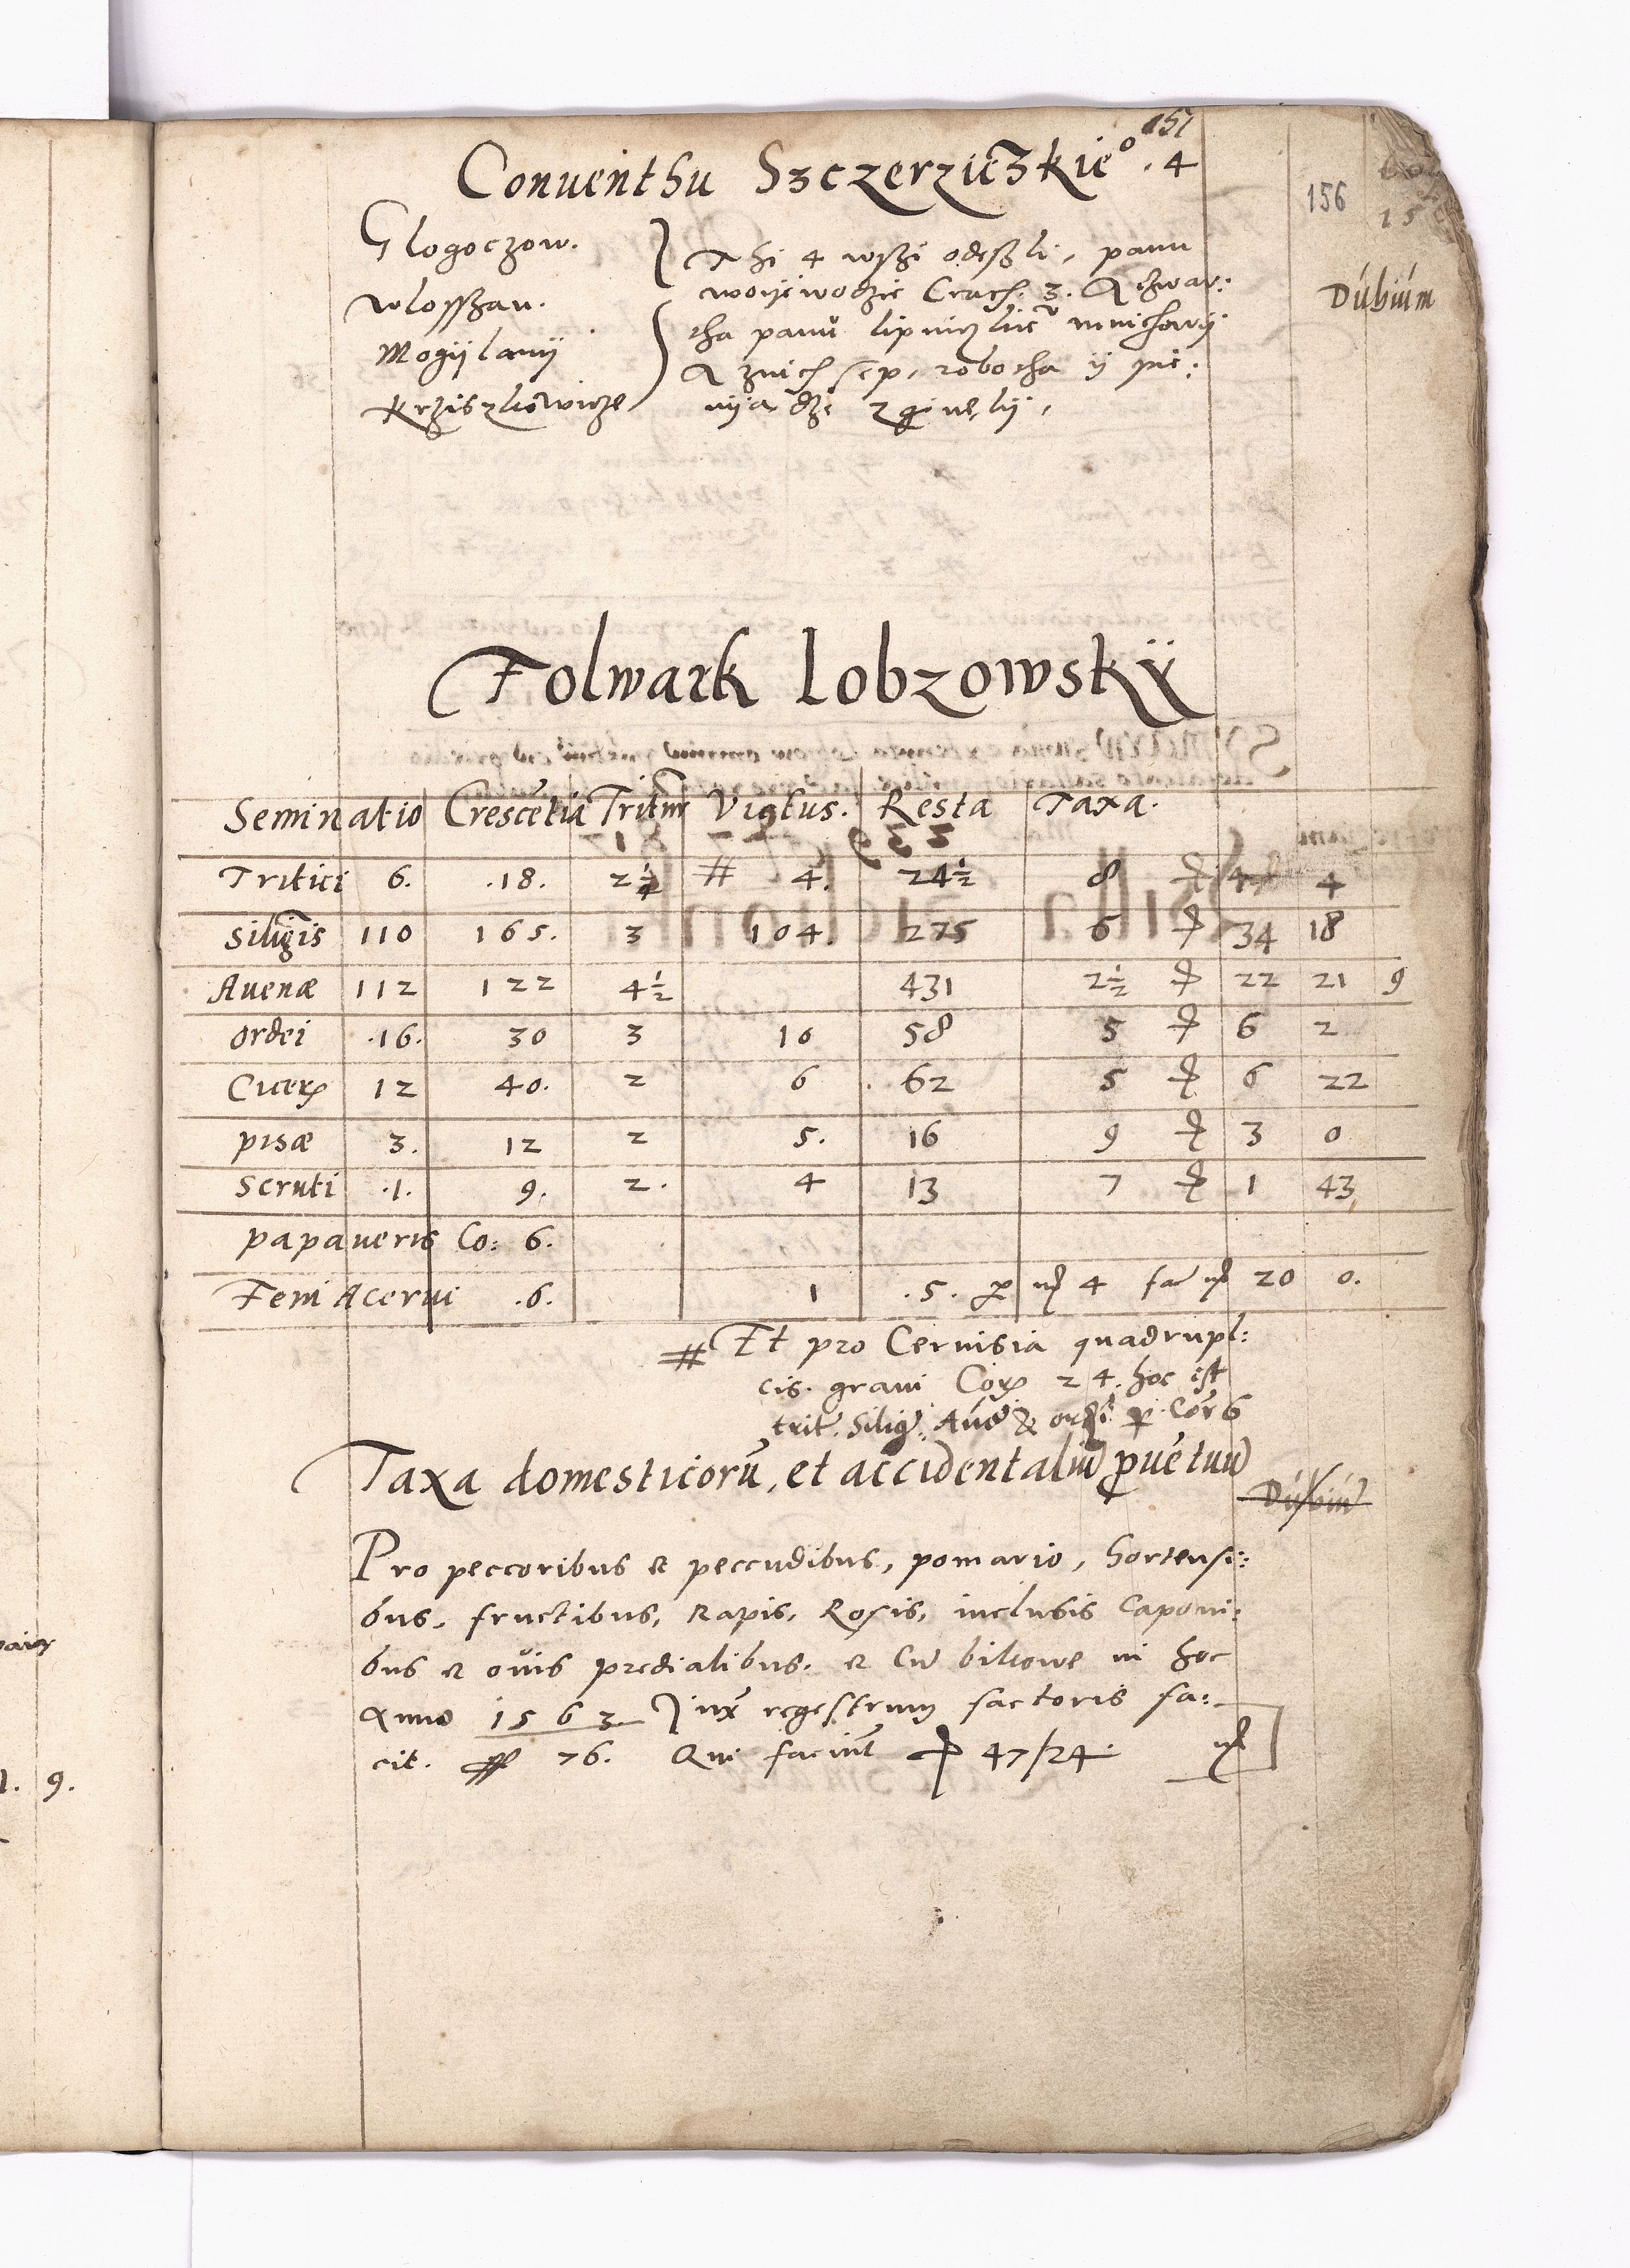 157
Conuenthu Szczerziczkie° . 4
156
Dubium
Glogoczow.
Wlosszan.
Mogijlanij
Krziszkowicze
Thi 4 wszi odeszli, panu
woijewodzie Crach. 3. A czwar:
tha panu lipniczkie° mnichowij
A znich sep, robotha ij pie:
nijądze zginęlij,
Folwark Lobzowskij
Seminatio Crescetia Tritur Victus. Resta Taxa.
Tritici 6. .18. 2½ # 4. 24½ 8 4
Siliginis 110 165. 3 104. 275 6 34 18
Auenæ 112 122 4½ 431 2½ 22 21 9
ordei .16. 30 3 10 58 5 6 2
Cicer 12 40. 2 6 62 5 6 22
pisæ 3. 12 2 5. 16 9 3 0
Scruti .1. 9. 2. 4 13 7 1 43
papaueris Co: 6.
Feni Acerui .6. 1 .5. 4 20 0.
# Et pro Ceruisia quadrupl:
cis. graui Cor 24. hoc est
trit. Silig. Aue & ordi Cor 6
Taxa domesticorū, et accidentaliū puētuū
Dubiu
Pro peccoribus et peccudibus, pomario, hortensi:
bus, fructibus, Rapis, Rosis, inclusis Caponi:
bus et ouis predialibus. et Cū bikowe in hoc
Anno 1563 iux regestrum factoris fa:
cit. 76. Qui faciūt 47/24